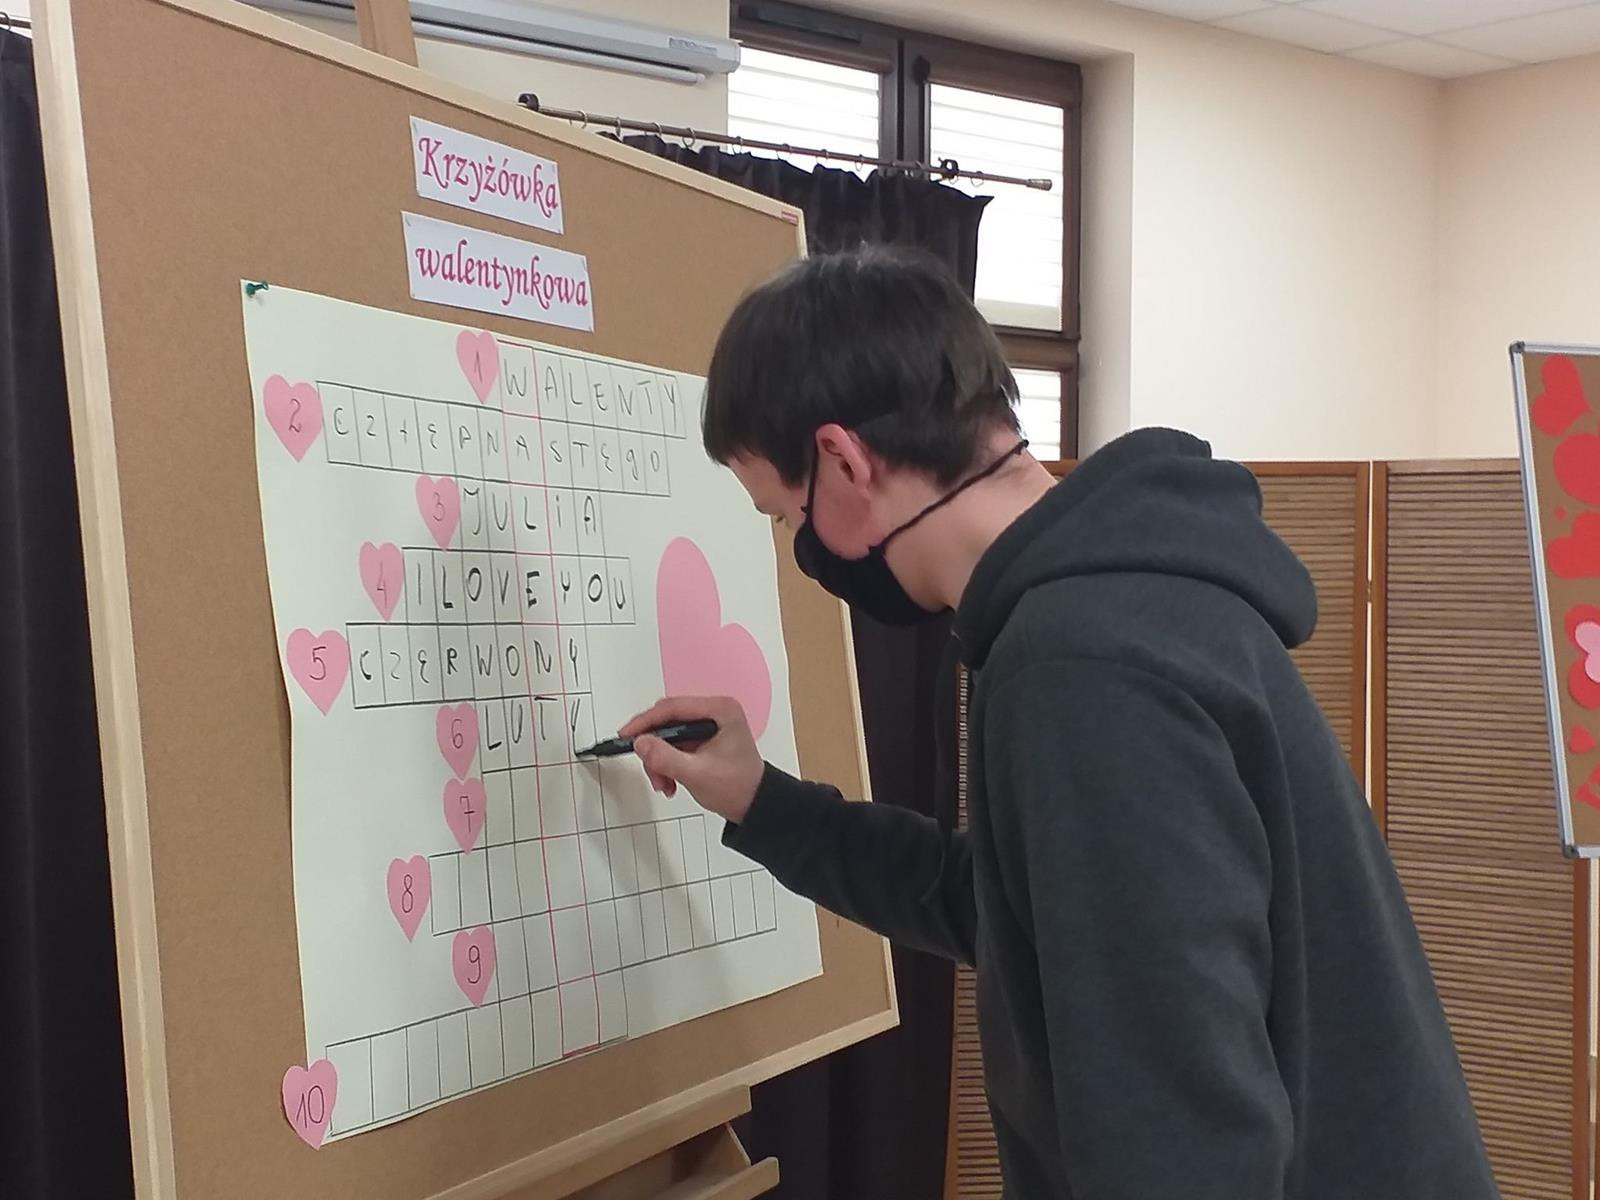 Krzyżówka
walentynkowa
1 WALENTY
2 CZTERNASTEGO
3 JULIA
4 I LOVE YOU
5 CZERWONY
6 LUTY
7
8
9
10